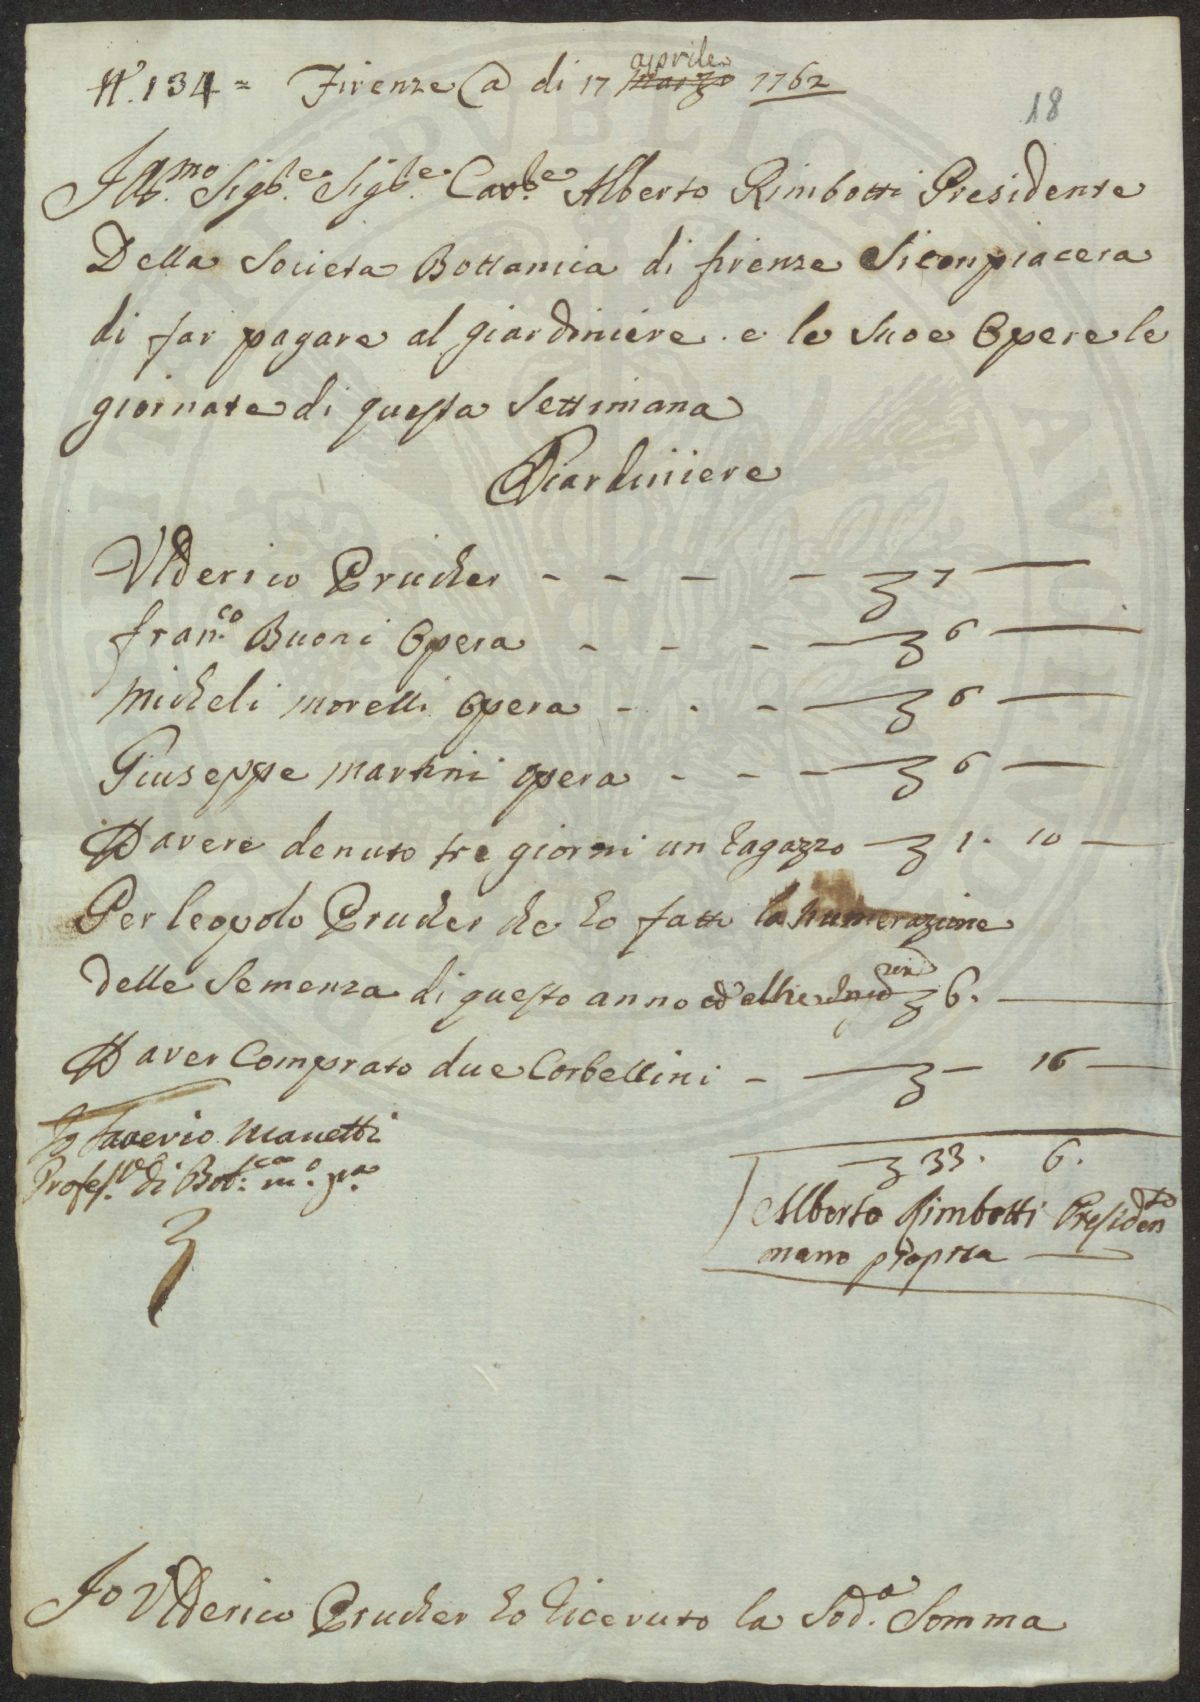 N.° 134 = Firenze @ di 17 aprile marzo 1762
18
Ill.mo Sig.re Sig.re Cav.re Alberto Rimbotti Presidente
Della Societa Bottanica di firenze Si conpiacera
di far pagare al giardiniere e le Sue Opere le
giornate di questa Settimana
Giardiniere
Vlderico Prucher - - - - 7 —
fran.co Buoni Opera - - - 6 —
Micheli morelli opera - - - 6 —
Giuseppe martini opera - - - 6 —
D avere denuto tre giorni un Ragazzo 1. 10 —
Per leopolo Prucher che ho fatti la numerazione
delle Semenza di questo anno ed ellie 6. —
D aver Comprato due Corbellini - — 16 —
Io Saverio Manetti
Profes.re di Bot.ca m.o p.a
33. 6.
Alberto Rimbotti Presidente
mano propria
Io Vlderico Prucher ho Ricevuto la Sod.a Somma